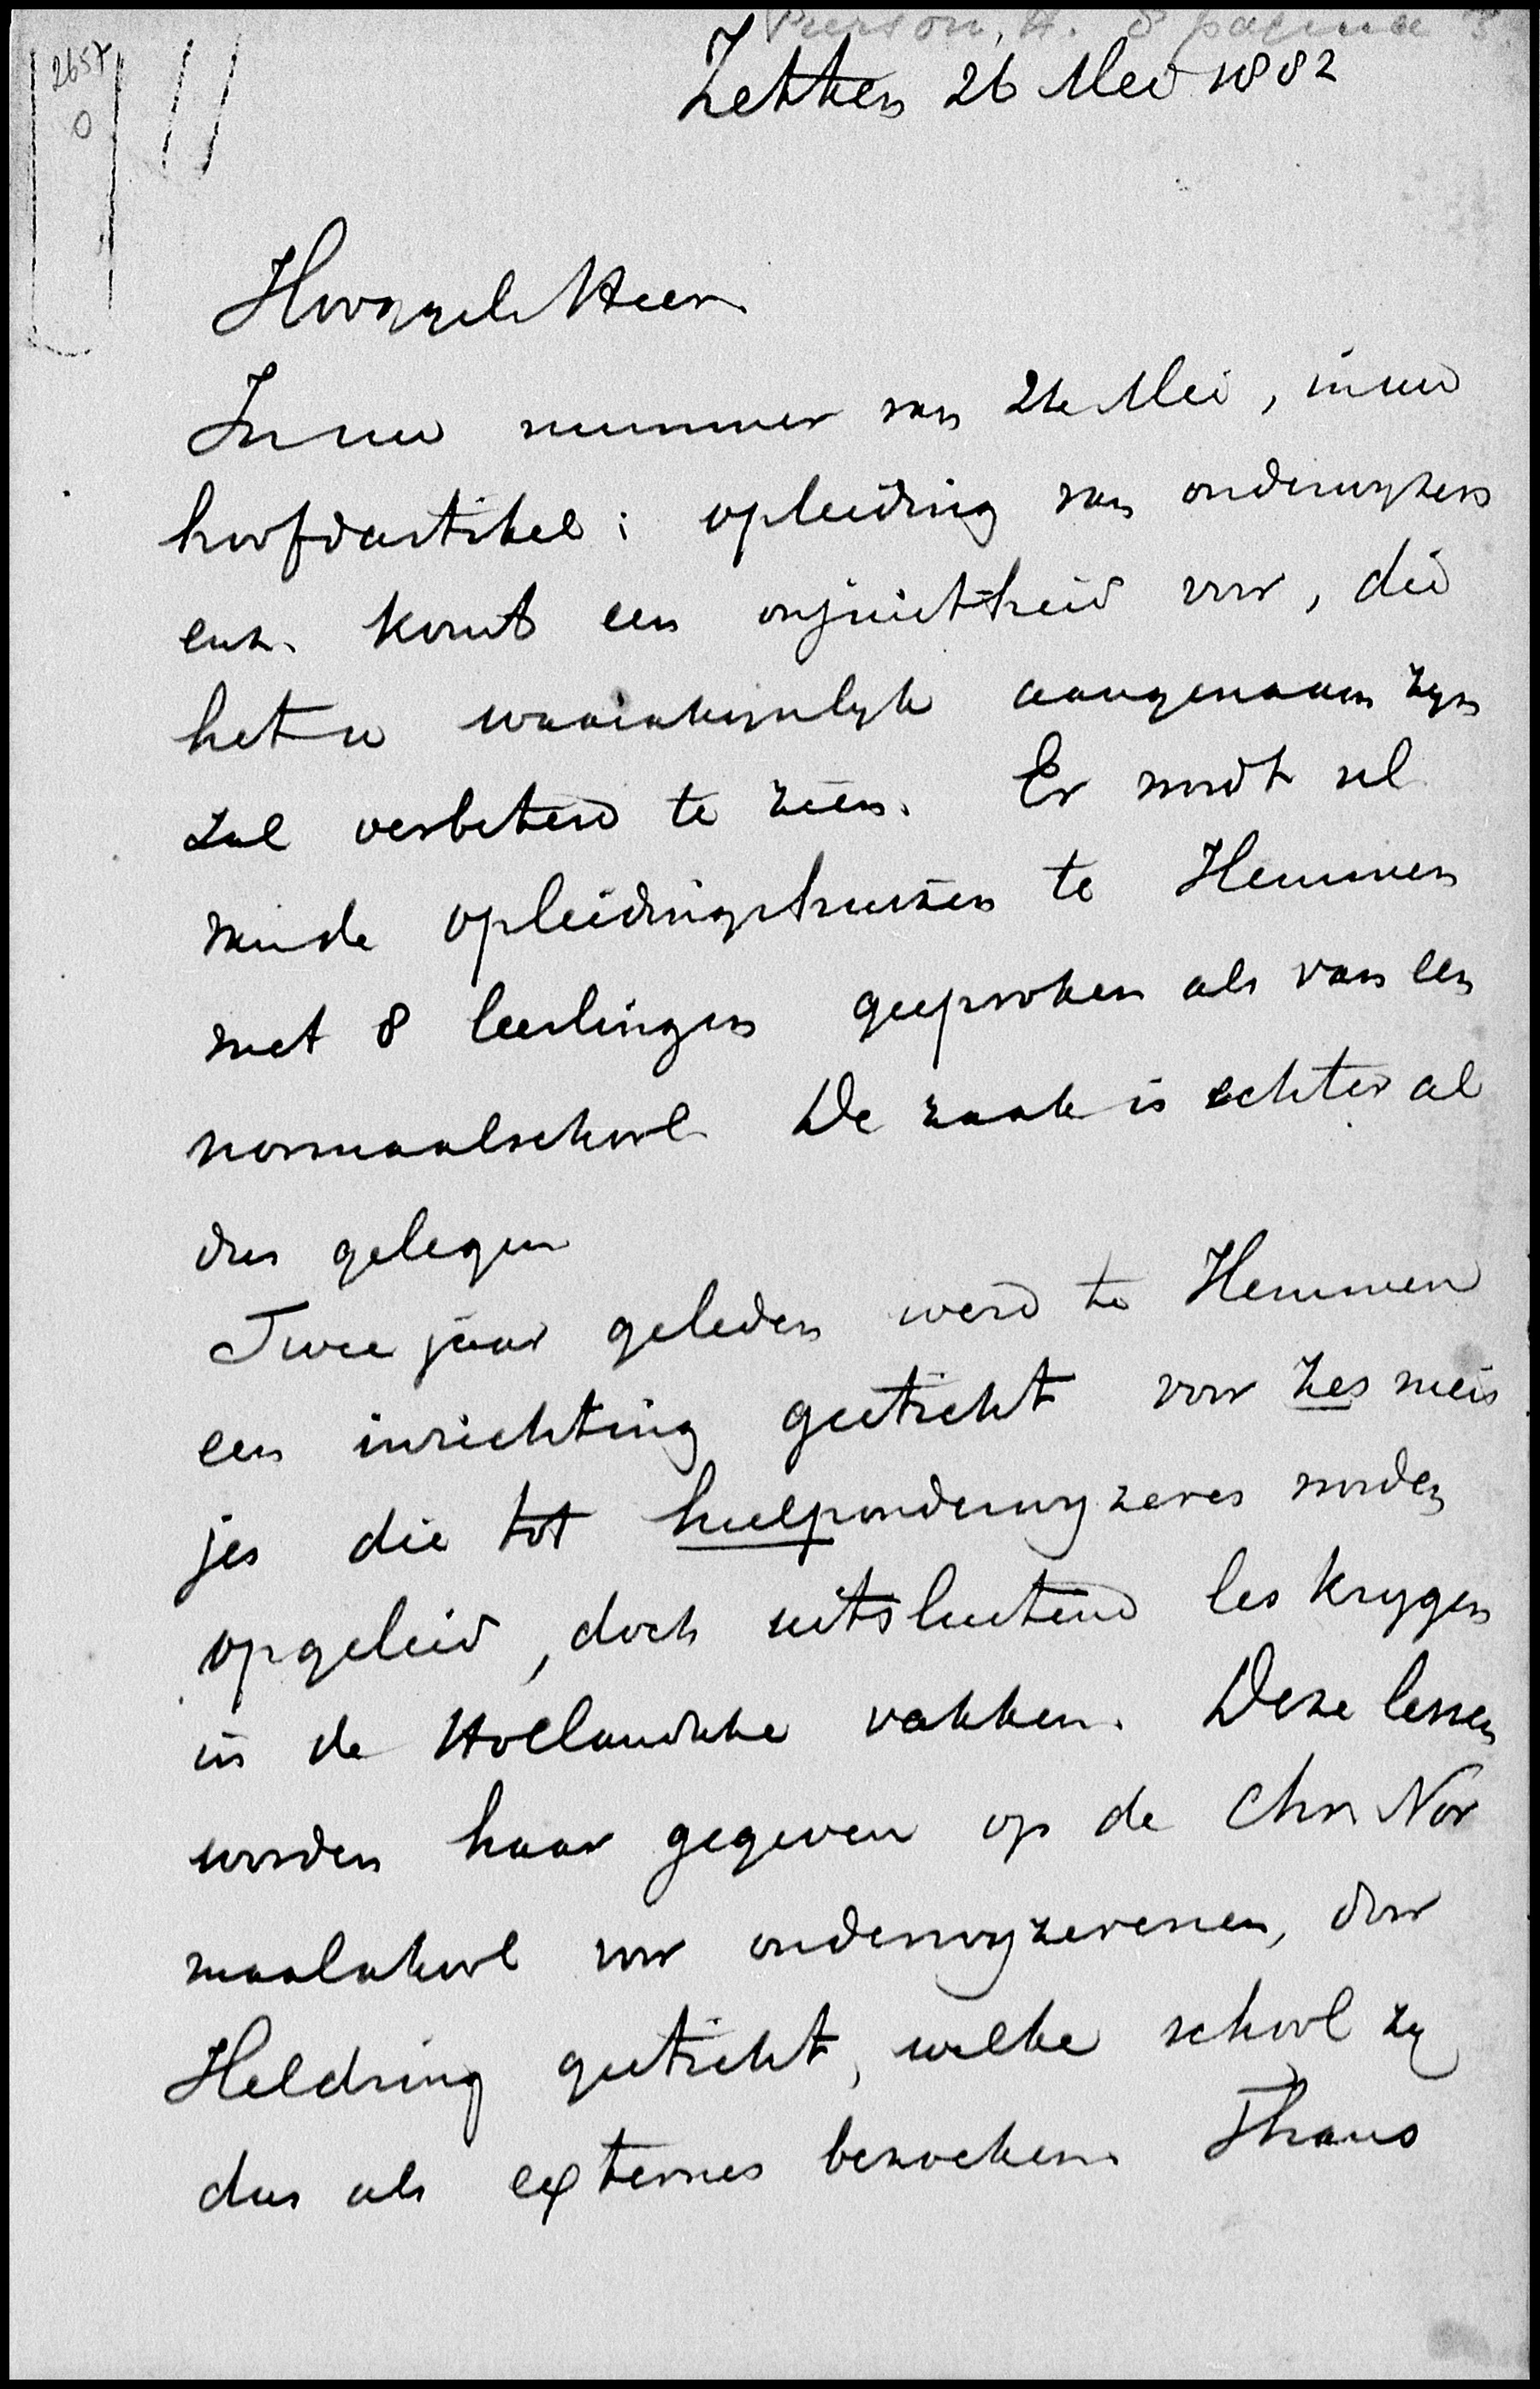 Pierson, H. 8 pagina's
2657
0
Zetten 26 Mei 1882
Hooggel. Heer
In uw nummer van 24 Mei, in uw
hoofdartikel: opleiding van onderwyzers
enz. komt een onjuistheid voor, die
het u waarschynlyk aangenaam zyn
zal verbeterd te zien. Er wordt nl
van de opleidingshuizen te Hemmen
met 8 leerlingen gesproken als van een
normaalschool. De zaak is echter al
dus gelegen
Twee jaar geleden werd te Hemmen
een inrichting gesticht voor zes meis
jes die tot hulponderwyzeres worden
opgeleid, doch uitsluitend les krygen
in de Hollandsche vakken. Deze lessen
worden haar gegeven op de Chr. Nor
maalschool voor onderwyzeressen, door
Heldring gesticht, welke school zy
dus als externes bezoeken. Thans